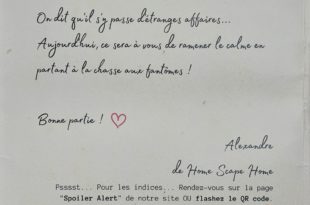 On dit qu'il s'y passe d'étranges affaires...
Aujourd'hui, ce sera à vous de ramener le calme en
partant à la chasse aux fantômes !
Bonne partie ! ♡
Alexandre
de Home Scape Home
Psssst... Pour les indices... Rendez-vous sur la page
"Spoiler Alert" de notre site OU flashez le QR code.